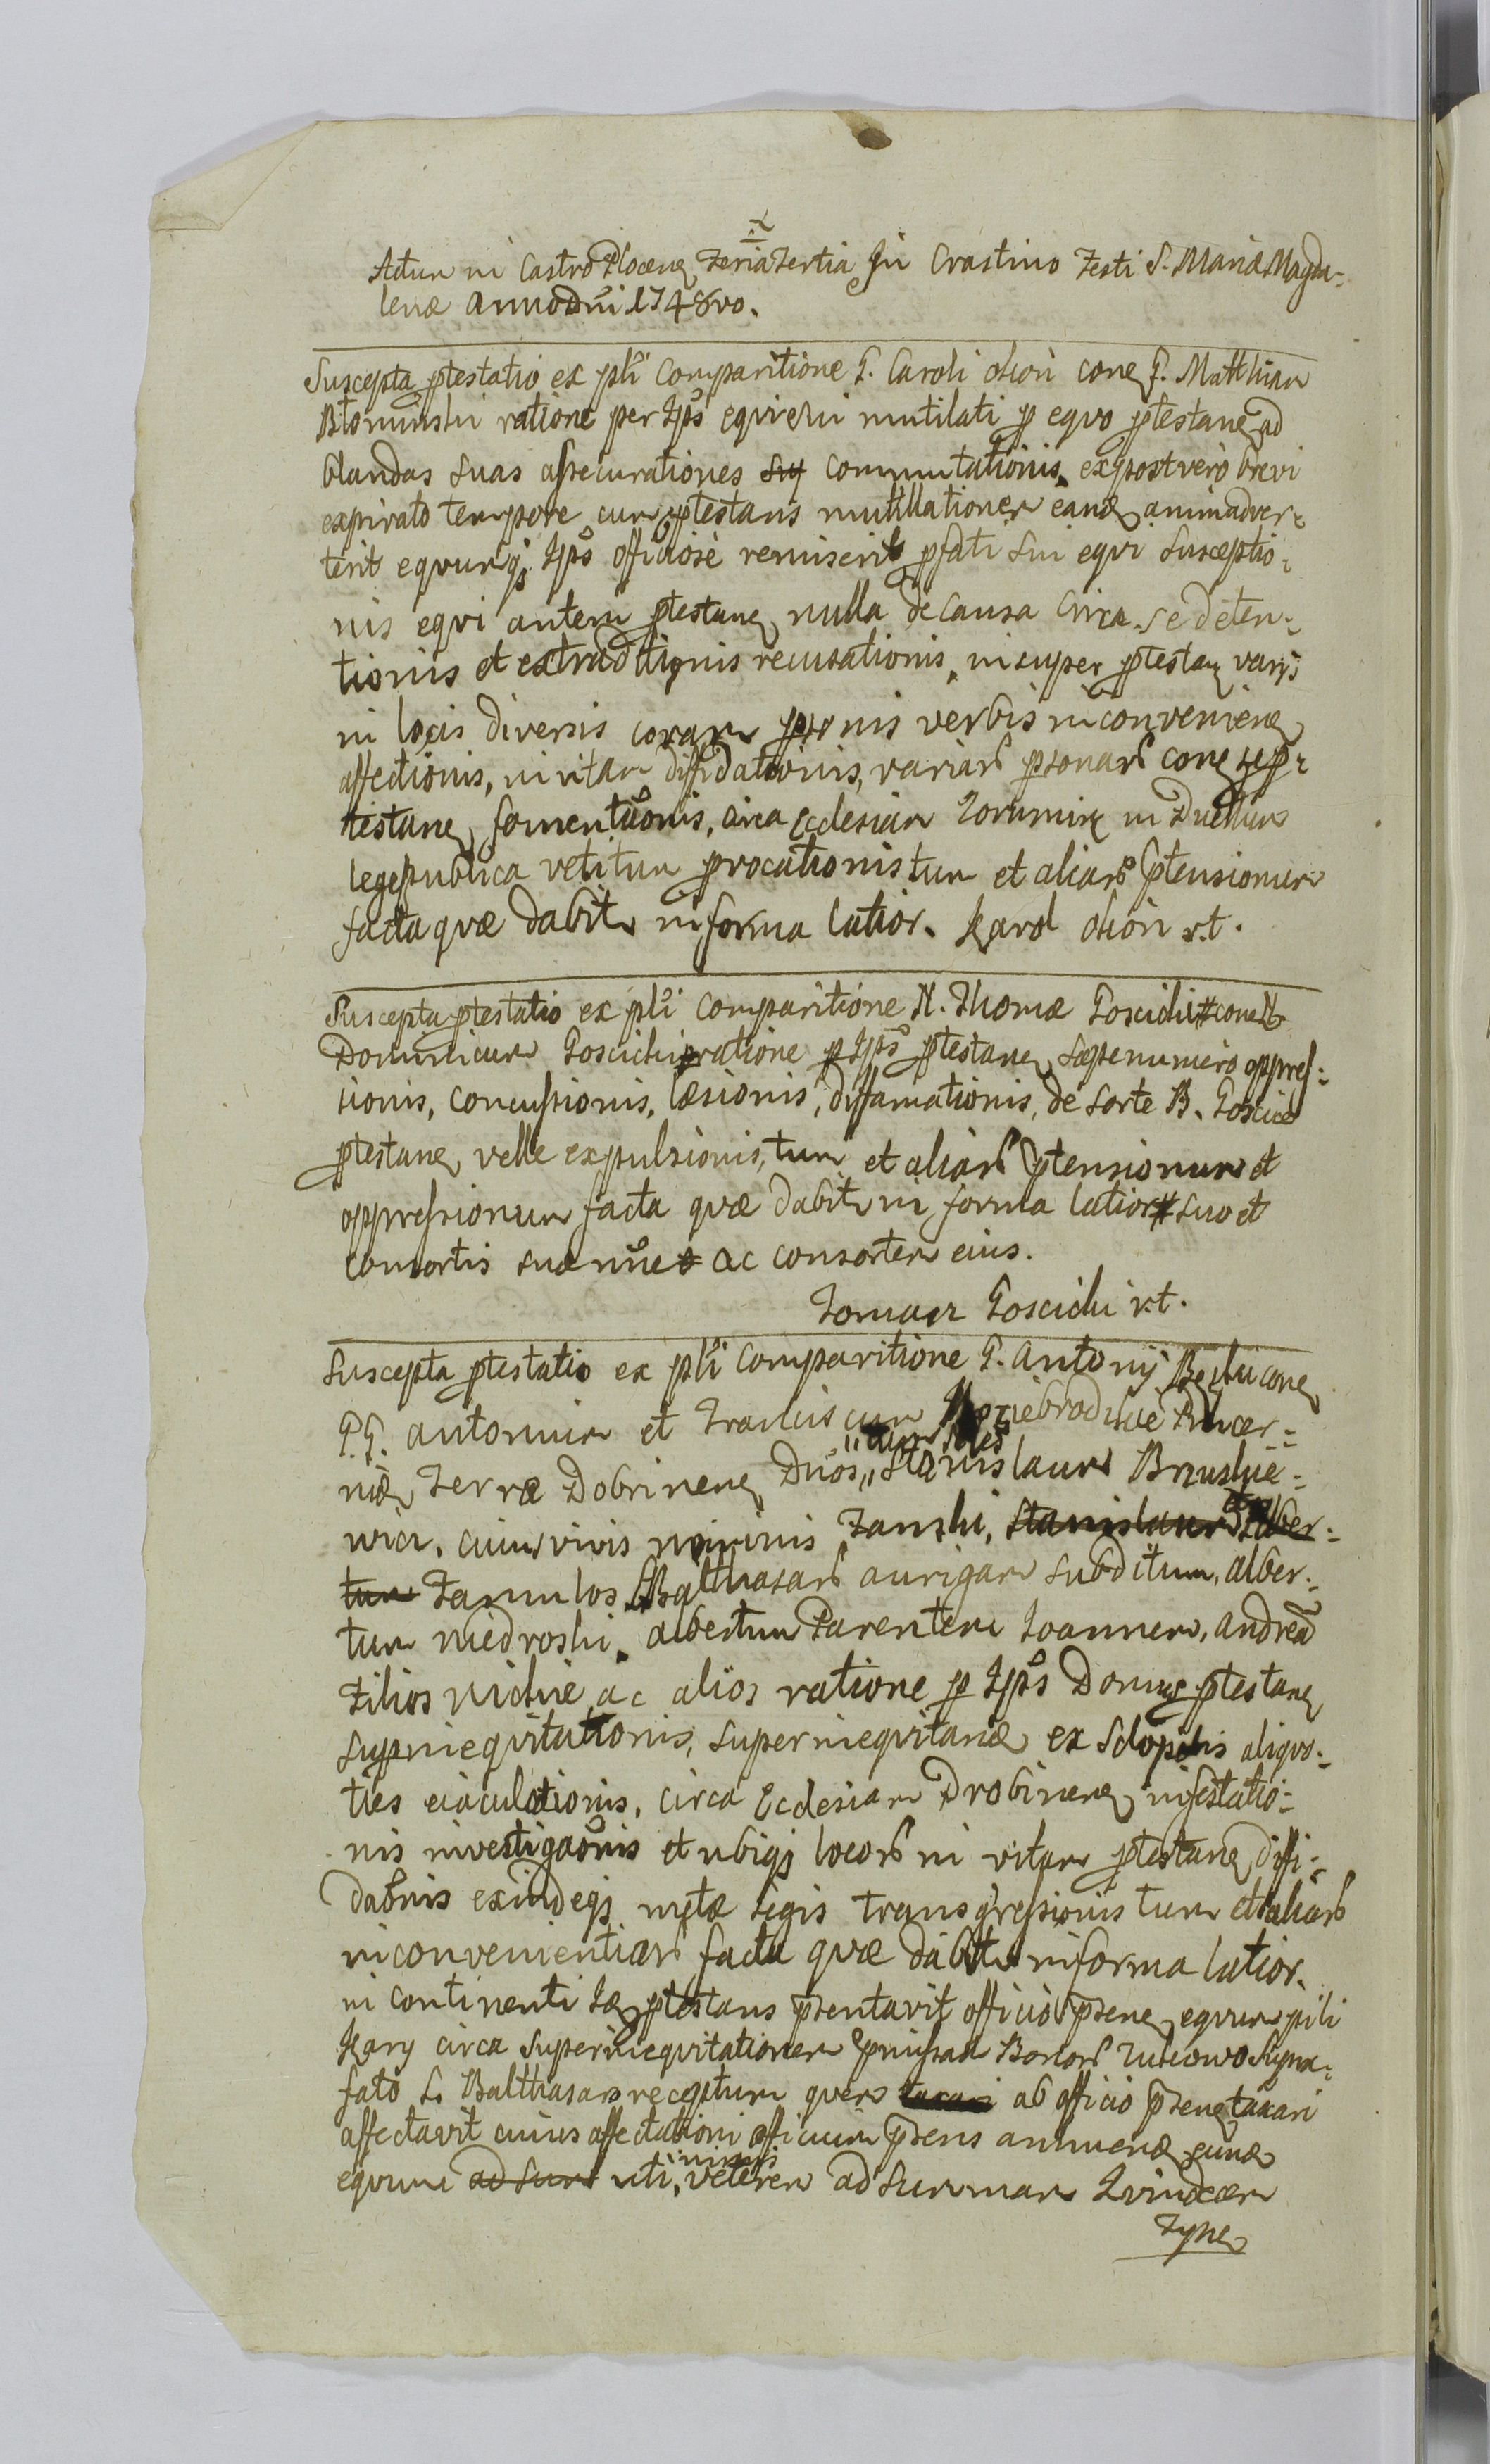 Actum in Castro Plocen Feria Tertia In Crastino Festi S. Mariæ Magda-
lenæ Anno dni 1748vo.
Suscepta ptestatio ex pli Comparitione G. Caroli okoń cone G. Matthiam
Błomiński ratione per Ips equi mutilati p equo ptestane ad
blandas suas assecurationes commutationis, ex post vero brevi
expirato tempore cum ptestans mutillationem eand animadver-
terit equumq Ips officiose remiserit pfati sui equi susceptio-
nis equi autem ptestane nulla de causa circa se deten-
tionis et extraditionis recusationis, insuper ptestan varijs
in locis diversis coram psonis verbis inconvenien
affectionis, in vitam diffidationis, variar psonar cone se p-
testane fomentaonis, circa Ecclesiam in Duellum
lege publica vetitum provocationis tum et aliar ptensionum
facta quæ dabit in forma latior. Karol okoń s.t.
Suscepta ptestatio ex pli Comparitione N. Thomæ Goscicki # cone N
Dominicum Goscicki ratione p Ips ptestane sæpenumero oppres-
sionis, concussionis, læsionis, diffamationis, de sorte B. Goscice
ptestane velle expulsionis, tum et aliar ptensionum et
oppressionum facta quæ dabit in forma latior # suo et
consortis suæ nne ac consortem eius.
Tomasz Goscicki s.t.
Suscepta ptestatio ex pli Comparitione G. Antonij cone
G.G. Antonium et Franciscum Pincer-
niæ Terræ Dobrinene Dnos, Stanislaum
wicz, cuium vivis nominis Zanski, Stanislaum Alber-
tum Famulos, Balthasar aurigam subditum, alber-
tum niedroski, albertum Parentem Ioannem, Andrea
Filios ac alios ratione p Ips Domus ptestane
supinequitationis, superinequitand ex sclopetis aliquo-
ties eiaculationis, circa Ecclesiam Drobinene infestatio-
nis investigaonis et ubiq locor in vitam ptestane diffi-
daonis exindeq metæ legis transgressionis tum et aliar
inconvenientiar facta quæ dabit in forma latior.
in continenti Id ptestans psentavit officio psene equum pili
Kary circa superinequitationem pmissam Bonor supra-
fato L. Balthasar receptum quem taxari ab officio psene taxari
affectavit cuius affectationi officium psens annuend eund
equum ad sum uti, nimis veterem ad summam Quindecem
Fyne